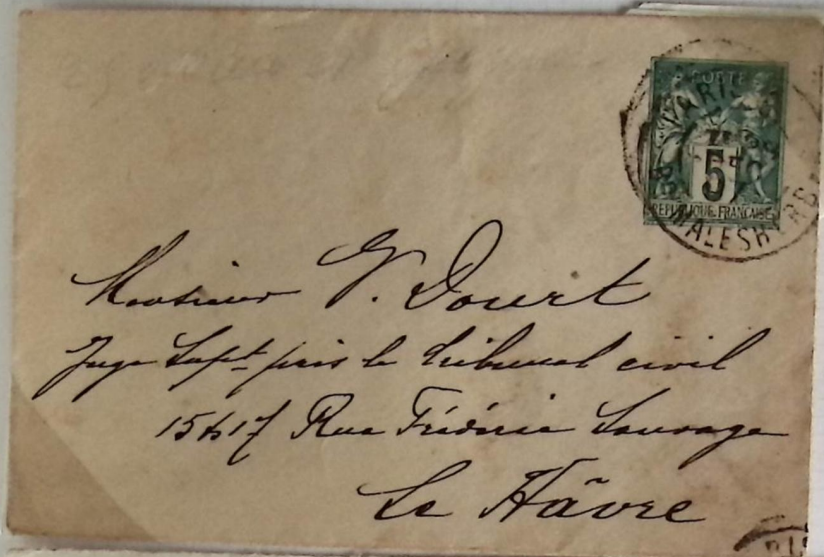 POSTE
PARIS
5
REPUBLIQUE FRANCAISE
BD MALESHERBES
Monsieur V. Douet
Juge Supt. près le Tribunal civil
15 & 17 Rue Frédéric Sauvage
Le Hâvre